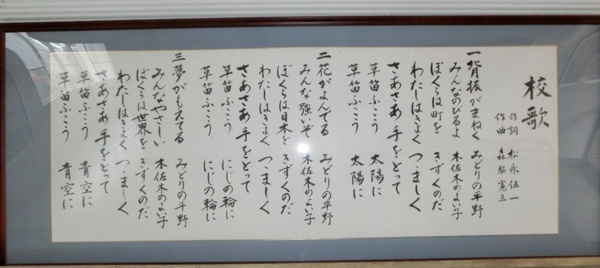 校歌
作詞 松永伍一
作曲 森脇憲三
一 背振がまねく みどりの平野
みんなのびるよ 木佐木のよい子
ぼくらは町を きずくのだ
わたしはきよく つゝましく
さあさあ手をとって
草笛ふこう 太陽に
草笛ふこう 太陽に
二 花がよんでる みどりの平野
みんな強いぞ 木佐木のよい子
ぼくらは日本を きずくのだ
わたしはきよく つゝましく
さあさあ手をとって
草笛ふこう にじの輪に
草笛ふこう にじの輪に
三 夢がもえてる みどりの平野
みんなやさしい 木佐木のよい子
ぼくらは世界を きずくのだ
わたしはきよく つゝましく
さあさあ手をとって
草笛ふこう 青空に
草笛ふこう 青空に